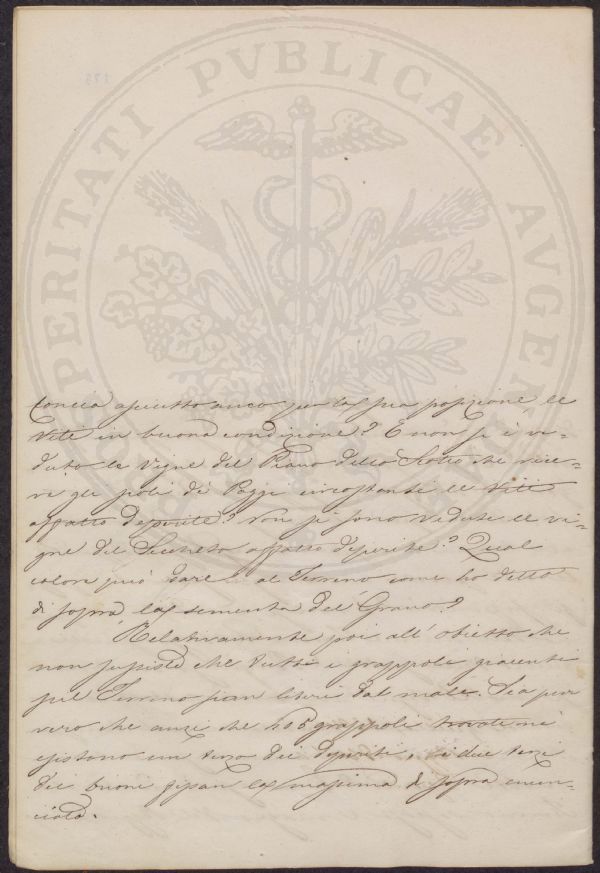 PROSPERITATI PVBLICAE AVGENDAE
175
concia asciutto anco per la sua posizione le
Viti in buona condizione? E non si è ve-
duto le Vigne del Piano dello Scotto che rice-
ve gli scoli de Poggi circostanti le Viti
affatto deperite? Non si sono vedute le vi-
gne del Seccheto affatto deperite? Qual
calore può dare al Terreno come ho detto
di sopra la sementa del Grano?
Relativamente poi all' obietto che
non sussiste che tutti i grappoli giacenti
sul Terreno sian liberi dal male. Sia pur
vero che anzi che 405 grappoli trovatine
esistono un terzo dei deperiti, i due terzi
dei buoni fissan la massima di sopra enun-
ciata.